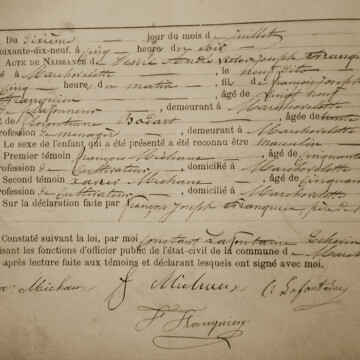 Du Dixième jour du mois de juillet
soixante-dix-neuf, à cinq heure du soir
ACTE DE NAISSANCE de Désiré André Victor Joseph Franquien
à Marchovelette le neuf dito
cinq heure du matin, fil de François Joseph
Franquien, âgé de vingt neuf
de demeurant à Marchovelette
de Clémentine Bodart, âgée de
profession de ménager, demeurant à Marchovelette
Le sexe de l'enfant qui a été présenté a été reconnu être masculin
Premier témoin François Michaux, âgé de cinquante
profession de cultivateur, domicilié à Marchovelette
Second témoin Michaux, âgé de cinquante
profession de cultivateur, domicilié à Marchovelette
Sur la déclaration faite par François Joseph Franquien père de
Constaté suivant la loi, par moi Constant Lafontaine Echevin
faisant les fonctions d'officier public de l'état-civil de la commune de March
après lecture faite aux témoins et déclarant lesquels ont signé avec moi.
Michaux F Michaux C. Lafontaine
F Franquien